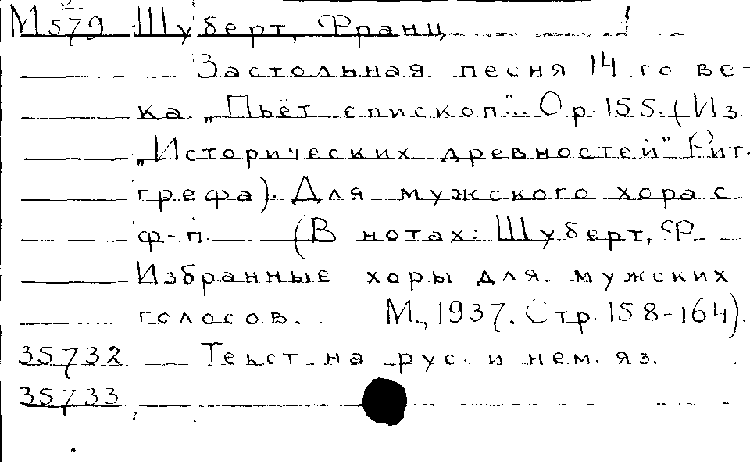 М579 Шуберт, Франц
Застольная песня 14 го ве-
ка. „Пьёт епископ". Ор. 155. (Из
„Исторических древностей" Рит-
грефа). Для мужского хора с
ф-п. (В нотах: Шуберт, Ф.
Избранные хоры для мужских
голосов. М., 1937. Стр. 158-164).
35732 Текст на рус. и нем. яз.
35733